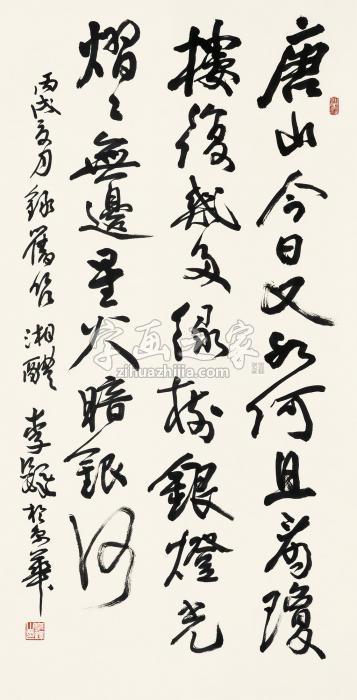 唐山今日又如何且看瓊
樓復幾多绿树銀燈光
熠々無邊星火暗銀河
丙戌夏月錄舊作湘醴李鐸於京華
字画之家
zihuazhijia.com